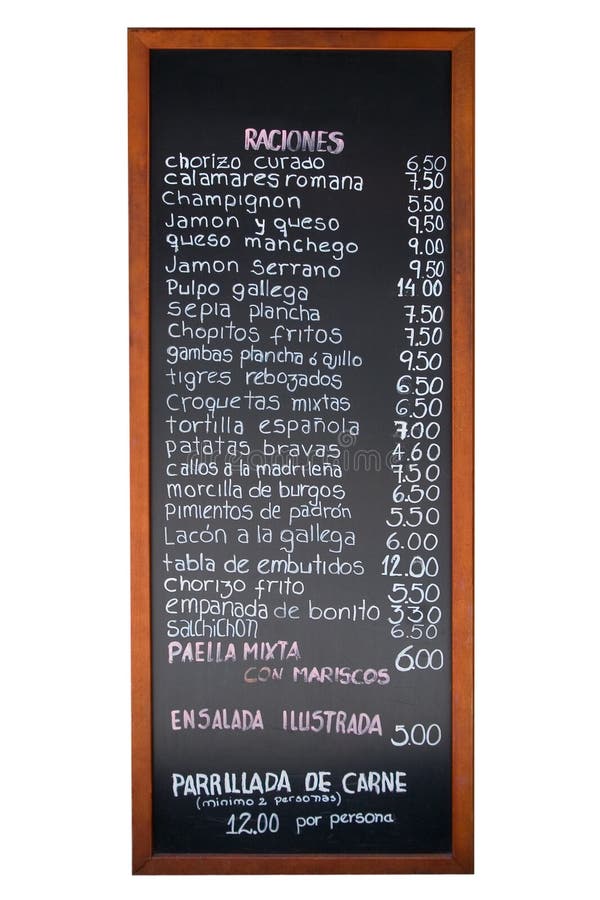 RACIONES
chorizo curado 6.50
calamares romana 7.50
champignon 5.50
Jamon y queso 9.50
queso manchego 9.00
Jamon serrano 9.50
Pulpo gallega 14.00
sepia plancha 7.50
chopitos fritos 7.50
gambas plancha ó ajillo 9.50
tigres rebozados 6.50
croquetas mixtas 6.50
tortilla española 7.00
patatas bravas 4.60
callos a la madrileña 7.50
morcilla de burgos 6.50
pimientos de padrón 5.50
Lacón a la gallega 6.00
tabla de embutidos 12.00
chorizo frito 5.50
empanada de bonito 3.30
salchichon 6.50
PAELLA MIXTA 6.00
CON MARISCOS
ENSALADA ILUSTRADA 5.00
PARRILLADA DE CARNE
(minimo 2 personas)
12.00 por persona